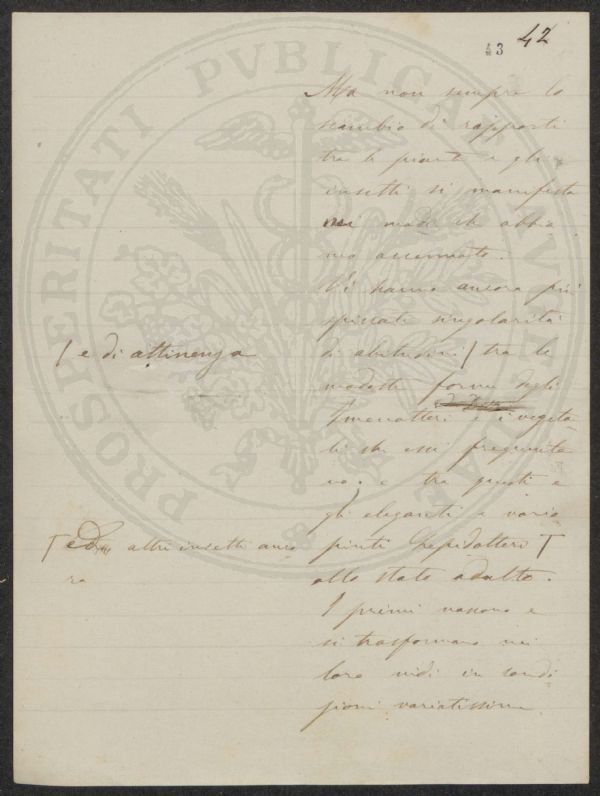 42
43
Ma non sempre lo
scambio di rapporti
tra le piante e gli
insetti si manifesta
nei modi che abbia
mo accennato.
V'hanno ancora più
spiccate singolarità
di abitudini / tra le
/ e di attinenza
modeste forme degli
Imenotteri e i vegeta
li che essi frequenta
no; e tra questi e
gli eleganti e vario
pinti Lepidotteri T
T ed altri insetti anco
ra
allo stato adulto.
I primi nascono e
si trasformano nei
loro nidi in condi
zioni variatissime
PROSPERITATI PVBLICAE AVGENDAE